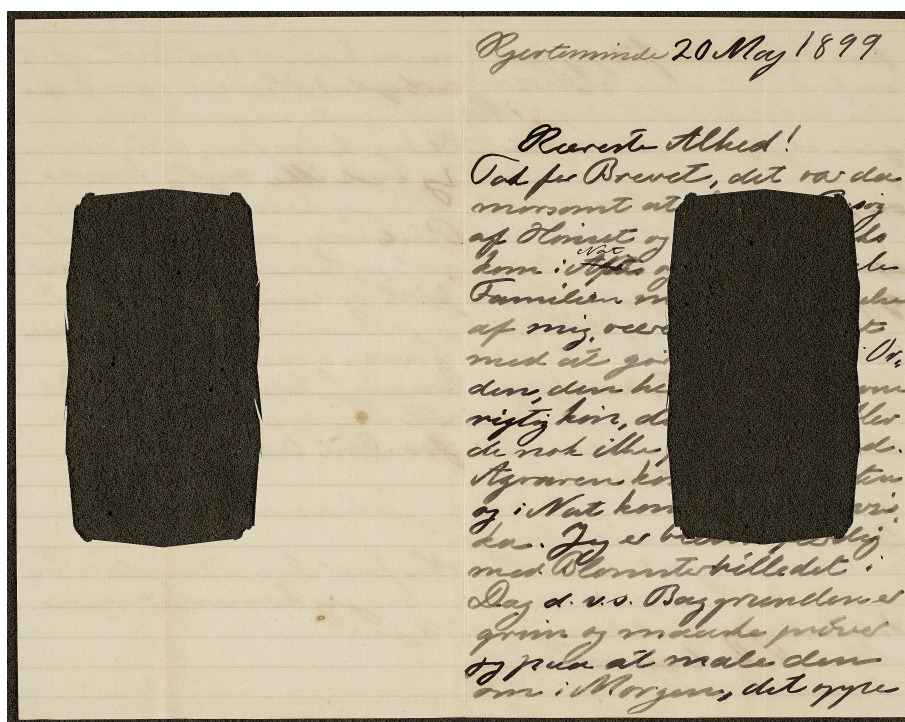 Kjerteminde 20 May 1899.
Kæreste Alhed!
Tak for Brevet, det var da
morsomt at søg
af Huset og ds
kom i Nat Aftes o le
Familien m else
af mig, være t
med at gør i Or-
den, den h
rigtig køn, d ller
de nok ikke d.
Agraren ko ten
og i Nat kom
ka. Jeg er færdig
med Blomsterbilledet i
Dag d.v.s. Baggrunden er
grim og maaske prøver
jeg paa at male den
om i Morgen, det oppe